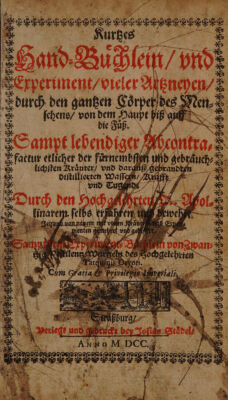 Kurtzes
Hand-Büchlein/ vnd
Experiment/ vieler Artzneyen/
durch den gantzen Cörper des Men-
schens/ von dem Haupt biß auff
die Füß.
Sampt lebendiger Abcontra-
factur etlicher der fürnembsten und gebräuch-
lichsten Kräuter/ und darauß gebrandten
distillierten Wassern/ Krafft
und Tugende
Durch den Hochgelehrten/ D. Apol-
linarem selbs erfahren und bewehrt.
Jetzund von newem mit
Sampt
des Hochgelehrten
Cum Gratia & Privilegio
Straßburg/
Verlegt und gedruckt bey Josias Städel/
ANNO M DCC.